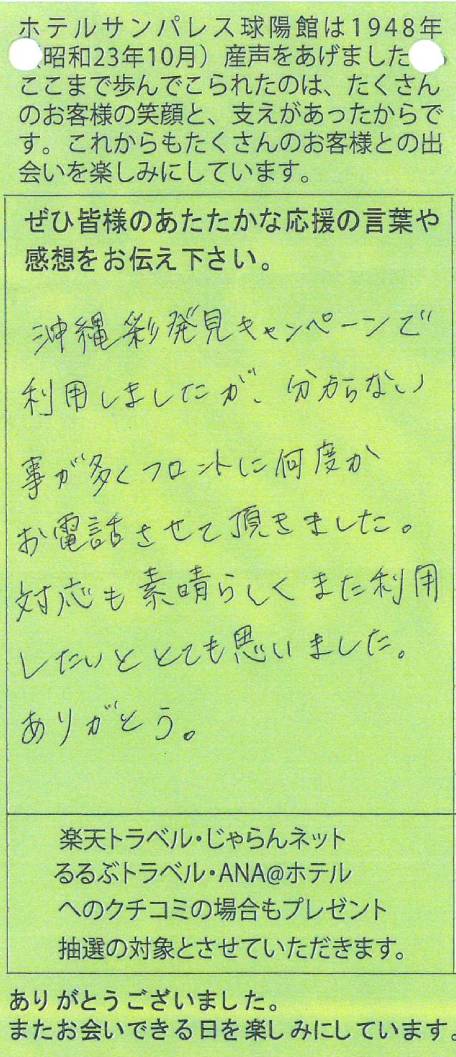 ホテルサンパレス球陽館は1948年
昭和23年10月）産声をあげました
ここまで歩んでこられたのは、たくさん
のお客様の笑顔と、支えがあったからで
す。これからもたくさんのお客様との出
会いを楽しみにしています。
ぜひ皆様のあたたかな応援の言葉や
感想をお伝え下さい。
沖縄彩発見キャンペーンで
利用しましたが、分からない
事が多くフロントに何度か
お電話させて頂きました。
対応も素晴らしくまた利用
したいととても思いました。
ありがとう。
楽天トラベル・じゃらんネット
るるぶトラベル・ANA@ホテル
へのクチコミの場合もプレゼント
抽選の対象とさせていただきます。
ありがとうございました。
またお会いできる日を楽しみにしています。